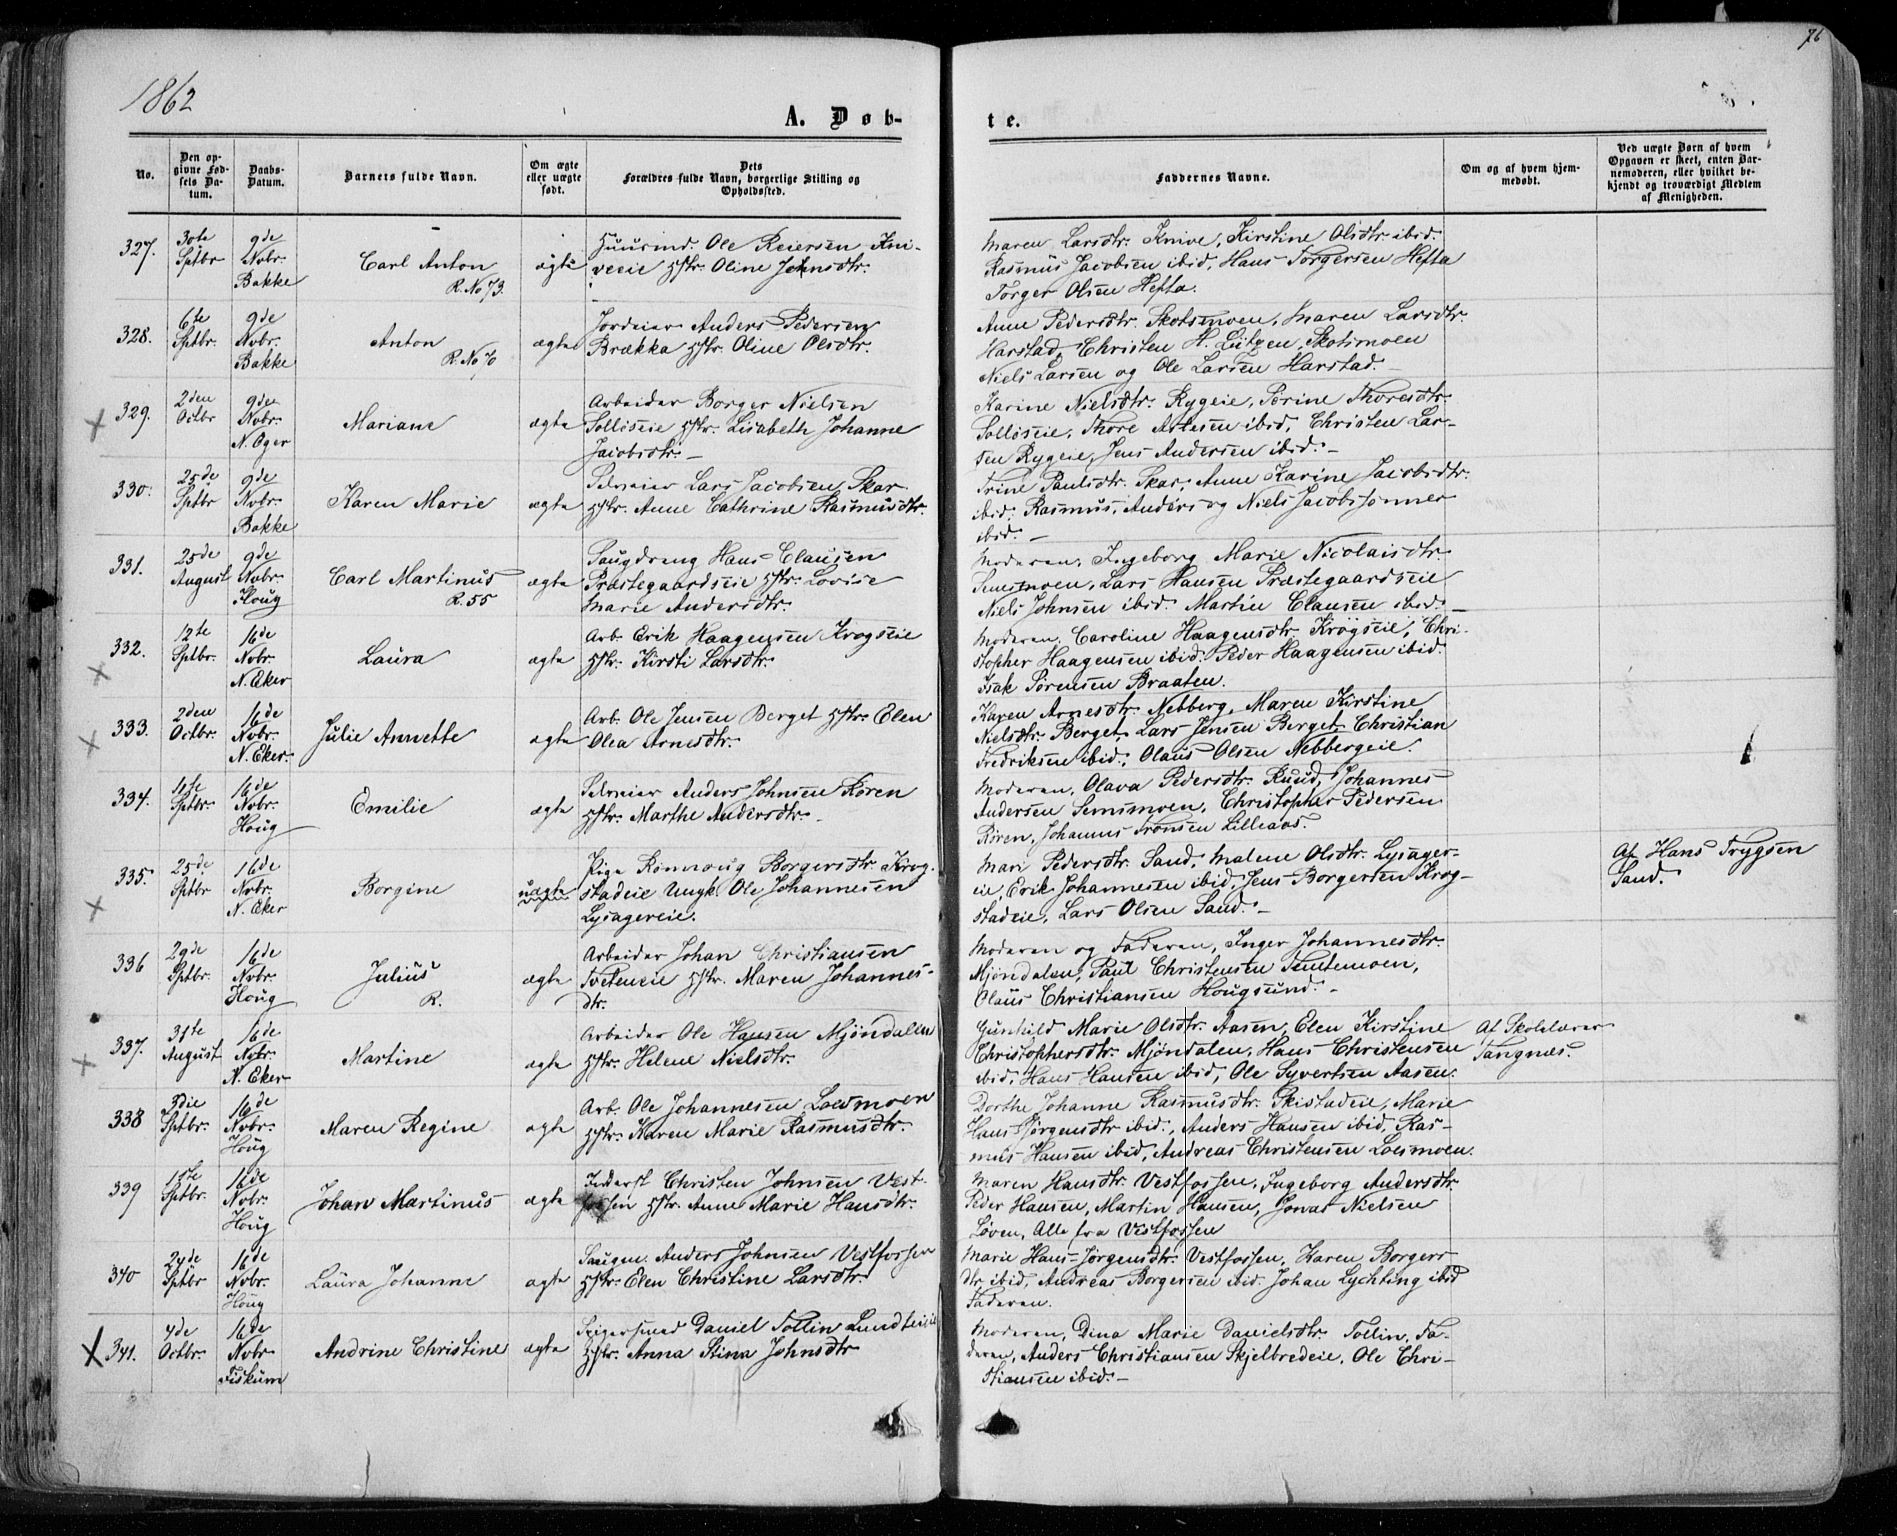 1862
76
A. Døb-
te.
No.
Den op-
givne Fød-
sels Da-
tum.
Daabs-
Datum.
Barnets fulde Navn.
Om ægte
eller uægte
født.
Dets
Forældres fulde Navn, borgerlige Stilling og
Opholdssted.
Faddernes Navne.
Om og af hvem hjem-
medøbt.
Ved uægte Børn af hvem
Opgaven er skeet, enten Bar-
nemoderen, eller hvilket be-
kjendt og troværdigt Medlem
af Menigheden.
327.
30te
Sptbr
9de
Nvbr.
Bakke
Carl Anton
R. No 73.
ægte
Huusmd. Ole Reiersen Kni-
veeie Hstr. Oline Johnsdtr.
Maren Larsdtr. Knive, Kirstine Olsdtr ibid.
Rasmus Jacobsen ibid, Hans Torgersen Hefta
Torger Olsen Hefta.
328.
6te
Sptbr.
9de
Nvbr.
Bakke
Anton
R. No 70
ægte
Jordeier Anders Pedersen
Brækka Hstr. Oline Olsdtr.
Anne Pedersdtr. Skotsmoen, Maren Larsdtr.
Harstad, Christen H. Lützen, Skotsmoen
Niels Larsen og Ole Larsen Harstad. -
329.
2den
Octbr
9de
Nvbr.
N. Eger
Mariane
ægte
Arbeider Borger Nielsen
Solløseie Hstr. Lisabeth Johanne
Jacobsdtr. -
Karine Nielsdtr. Rygeie, Sørine Thoresdtr.
Solløseie, Thore Arnesen ibid, Christen Lar-
sen Rygeie, Jens Andersen ibid. -
330.
25de
Sptbr
9de
Nvbr.
Bakke
Karen Marie
ægte
Selveier Lars Jacobsen Skar
Hstr. Anne Cathrine Rasmusdtr.
Trine Paulsdtr. Skar, Anne Karine Jacobsdtr.
ibid. Rasmus, Anders og Niels Jacobssønner
ibid. -
331.
25de
August
9de
Nvbr.
Houg
Carl Martinus
R. 55
ægte
Saugdreng Hans Clausen
Præstegaardseie Hstr. Lovise
Marie Andersdtr.
Moderen, Ingeborg Marie Nicolaisdtr
Semsmoen, Lars Hansen Præstegaardseie
Niels Johnsen ibid. Martin Clausen ibid. -
332.
12te
Sptbr.
16de
Nvbr.
N. Eker
Laura
ægte
Arb. Erik Haagensen Krogseie
Hstr. Kirsti Larsdtr.
Moderen, Caroline Haagensdtr. Krogseie, Chri-
stopher Haagensen ibid. Peder Haagensen ibid.
Isak Sørensen Braaten.
333.
2den
Octbr.
16de
Nvbr.
N. Eker.
Julie Annette
ægte
Arb. Ole Jensen Berget Hstr. Elen
Olea Arnesdtr.
Karen Arnesdtr. Nebberg, Maren Kirstine
Nielsdtr. Berget, Lars Jensen Berget, Christian
Fredriksen ibid., Olaus Olsen Nebbergeie.
334.
11te
Sptbr.
16de
Nvbr.
Houg
Emilie
ægte
Selveier Anders Johnsen Røren
Hstr. Marthe Andersdtr. -
Moderen, Olava Pedersdtr. Ruud, Johannes
Andersen Semsmoen, Christopher Pedersen
Røren, Johannes Tronsen Lilleaas.
335.
25de
Sptbr
16de
Nvbr.
N. Eker
Borgine
uægte
Pige Rønnoug Borgersdtr. Krog-
stadeie Ungk. Ole Johannesen
Lysagereie.
Mari Pedersdtr. Sand, Malene Olsdtr. Lysager-
eie, Erik Johannesen ibid, Jens Borgersen Krog-
stadeie, Lars Olsen Sand. -
Af Hans Trygsen
Sand.
336
29de
Sptbr.
16de
Nvbr.
Houg
Julius
R.
ægte
Arbeider Johan Christiansen
Tveteneie Hstr. Maren Johannes-
dtr.
Moderen og Faderen, Inger Johannesdtr.
Mjøndalen, Paul Christensen Temtemoen,
Olaus Christiansen Hougsund. -
337.
31te
August
16de
Nvbr.
N. Eker
Martine
ægte
Arbeider Ole Hansen Mjøndalen
Hstr. Helene Nielsdtr.
Gunhild Marie Olsdtr. Aasen, Elen Kirstine
Christophersdtr. Mjøndalen, Hans Christensen
ibid, Hans Hansen ibid, Ole Syvertsen Aasen.
Af Skolelærer
Tangnæs.
338
3die
Sptbr.
16de
Nvbr.
Houg
Maren Regine
ægte
Arb. Ole Johannesen Loesmoen
Hstr. Karen Marie Rasmusdtr.
Dorthe Johanne Rasmusdtr. Skistadeie, Marie
Hans Jørgensdtr ibid., Anders Hansen ibid, Ras-
mus Hansen ibid, Andreas Christensen Loesmoen.
339
15te
Sptbr.
16de
Nvbr.
Houg
Johan Martinus
ægte
Christen Johnsen Vest-
fossen Hstr. Anne Marie Hansdtr.
Maren Hansdtr. Vestfossen, Ingeborg Andersdtr.
Peder Hansen, Martin Hansen, Jonas Nielsen
Løven, Alle fra Vestfossen
340
24de
Sptbr
16de
Nvbr.
Houg
Laura Johanne
ægte
Saugm. Anders Johnsen Vestfossen
Hstr. Elen Christine Larsdtr.
Marie Hans-Jørgensdtr. Vestfossen, Karen Borgers
dtr ibid, Andreas Borgersen ibid. Johan Lychting ibid
Faderen.
341.
7de
Octbr.
16de
Nvbr
Fiskum
Andrine Christine
ægte
Daniel Tollin Lundteigeie
Hstr. Anna Stina Johnsdtr
Moderen, Dina Marie Danielsdtr. Tollin, Fa-
deren, Anders Christiansen Skjelbredeie, Ole Chri-
stiansen ibid. -